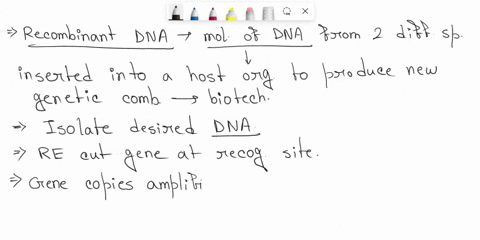 ⇒ Recombinant DNA → mol. of DNA from 2 diff sp.
↓
inserted into a host org to produce new
genetic comb → biotech.
⇒ Isolate desired DNA.
⇒ RE cut gene at recog site.
⇒ Gene copies amplifi